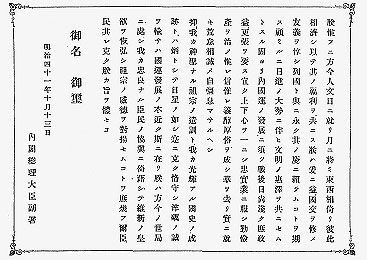 朕惟フニ方今人文日ニ就リ月ニ將ミ東西相倚リ彼此
相濟シ以テ其ノ福利ヲ共ニス朕ハ爰ニ益國交ヲ修メ
友義ヲ惇シ列國ト與ニ永ク其ノ慶ニ賴ラムコトヲ期
ス顧ミルニ日進ノ大勢ニ伴ヒ文明ノ惠澤ヲ共ニセム
トスル固ヨリ內國運ノ發展ニ須ツ戰後日尚淺ク庶政
益更張ヲ要ス宜ク上下心ヲ一ニシ忠實業ニ服シ勤儉
產ヲ治メ惟レ信惟レ義醇厚俗ヲ成シ華ヲ去リ實ニ就
キ荒怠相誡メ自彊息マサルヘシ
抑我カ神聖ナル祖宗ノ遺訓ト我カ光輝アル國史ノ成
跡トハ炳トシテ日星ノ如シ寔ニ克ク恪守シ淬礪ノ誠
ヲ輸サハ國運發展ノ本近ク斯ニ在リ朕ハ方今ノ世局
ニ處シ我カ忠良ナル臣民ノ協翼ニ倚藉シテ維新ノ皇
猷ヲ恢弘シ祖宗ノ威德ヲ對揚セムコトヲ庶幾フ爾臣
民其レ克ク朕カ旨ヲ體セヨ
御名 御璽
明治四十一年十月十三日
內閣總理大臣副署